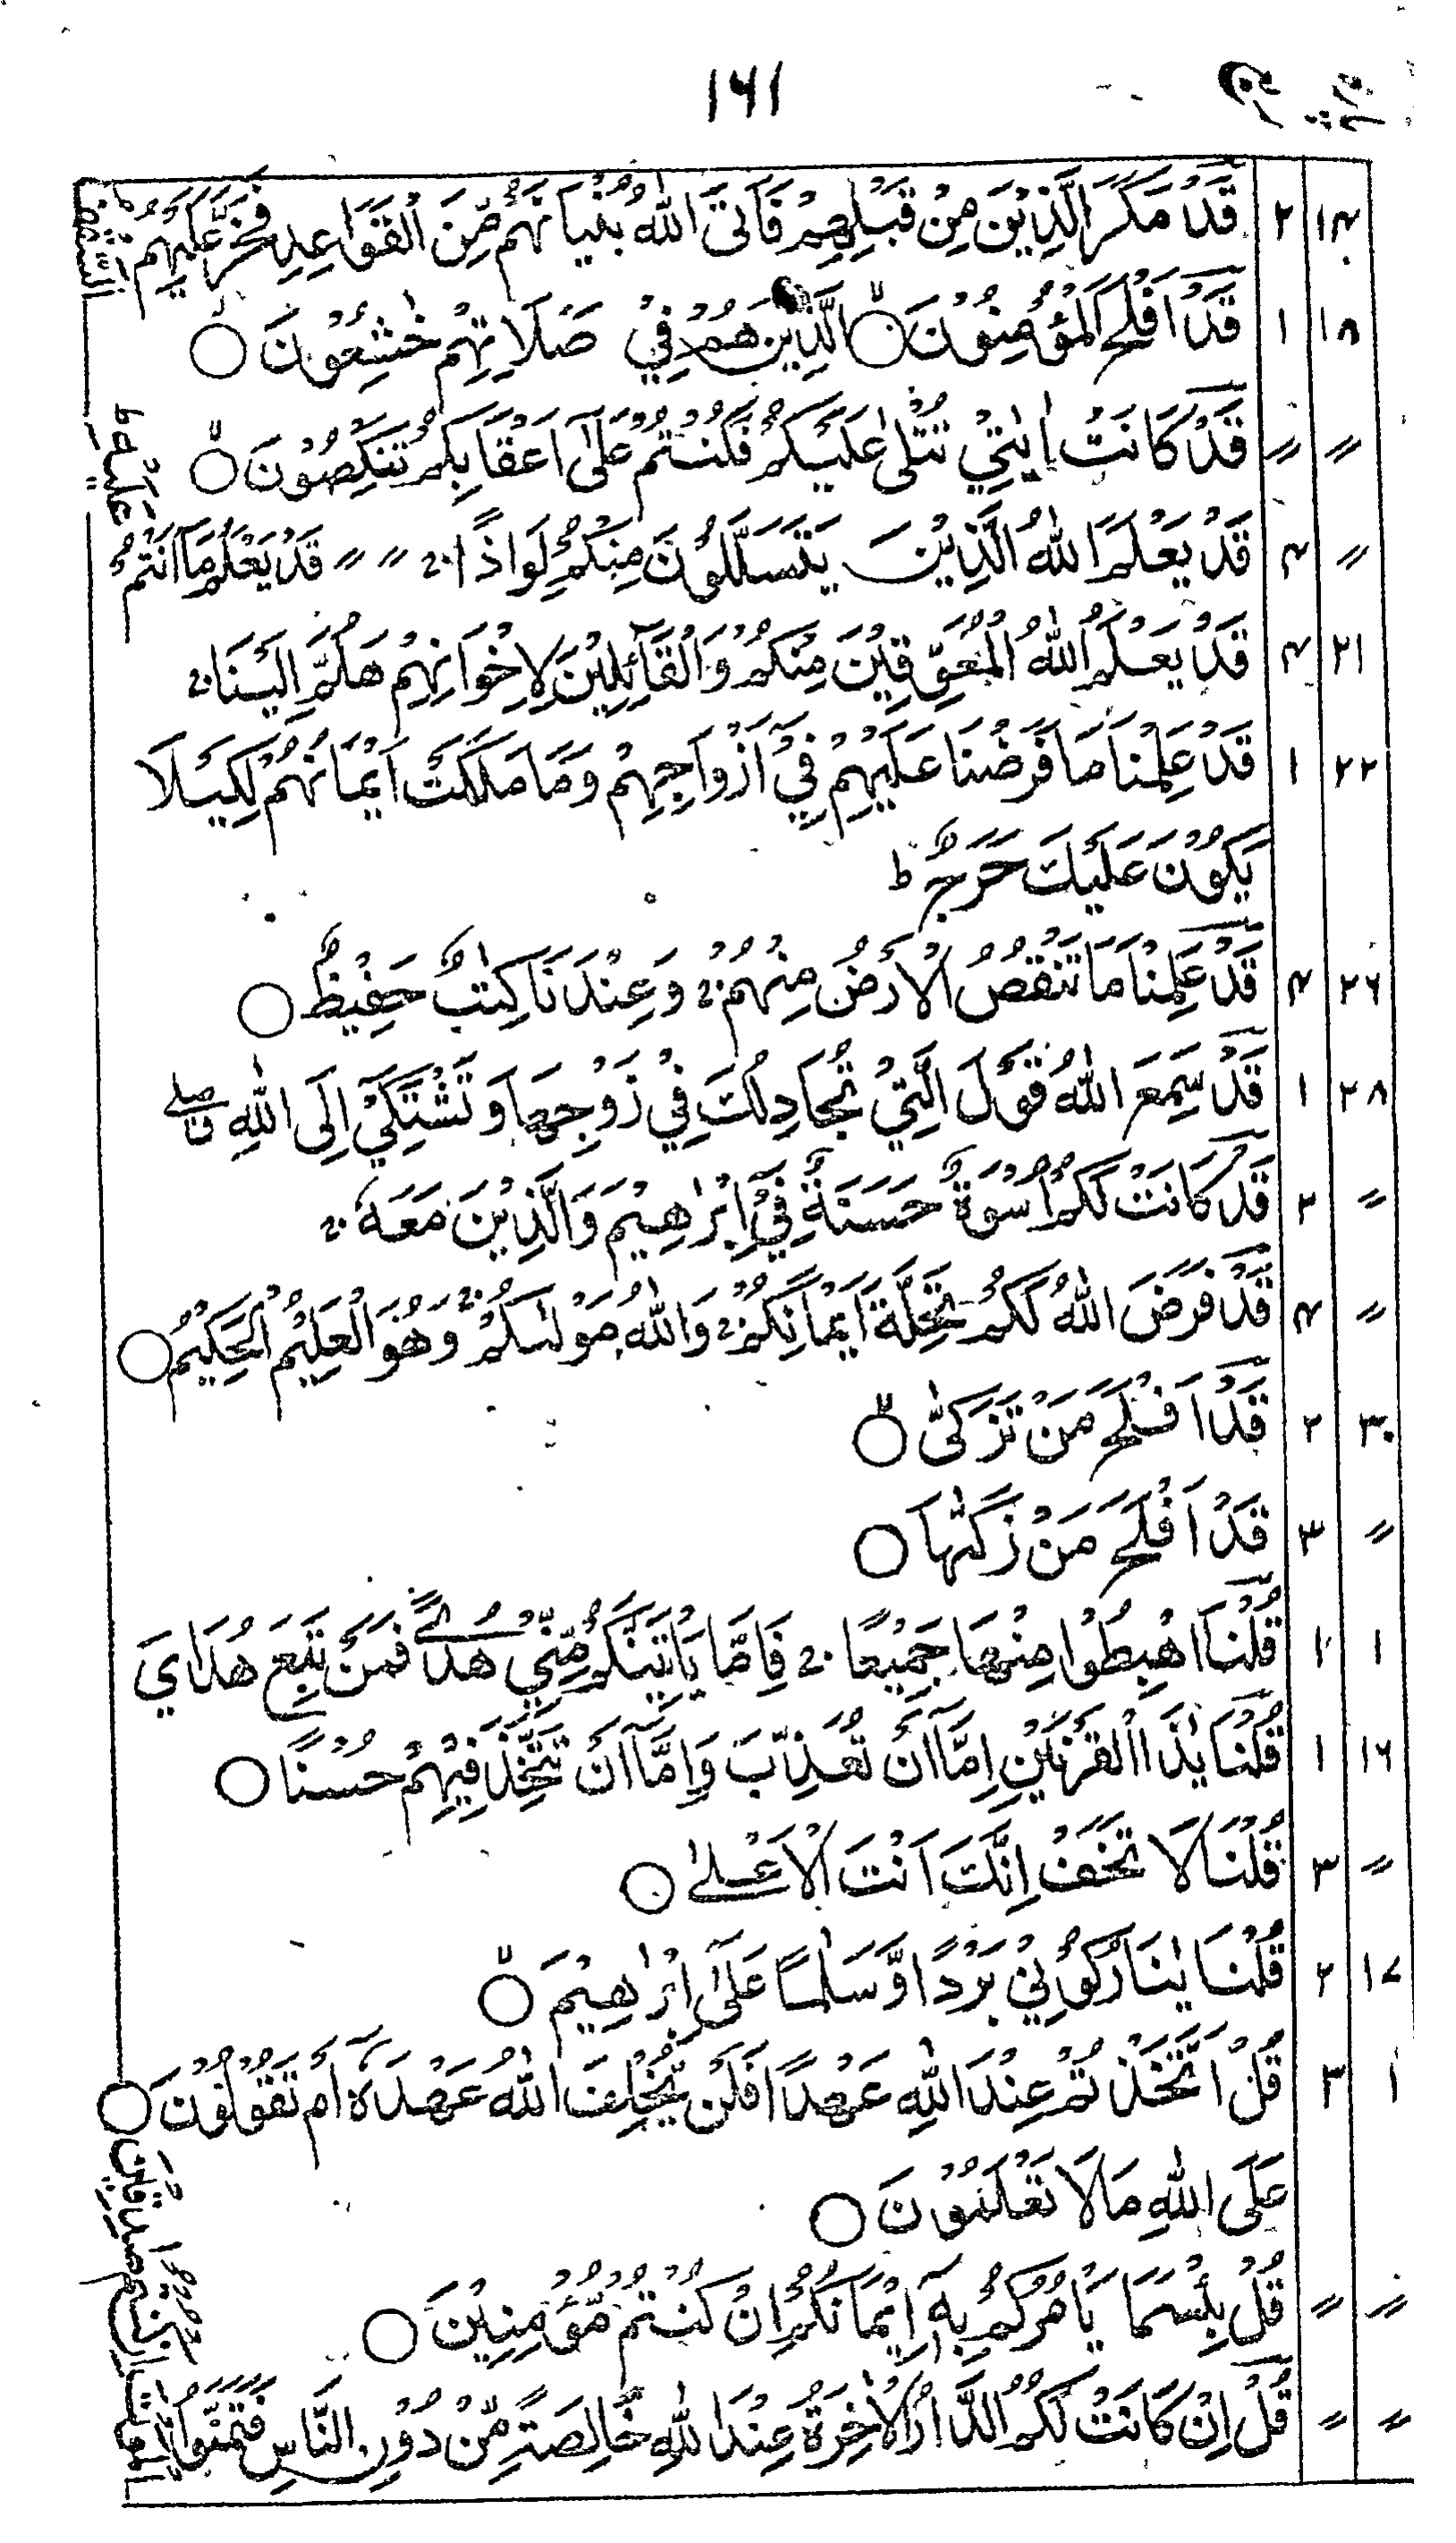 ۱۶۱
قَدْ مَكَرَ الَّذِيْنَ مِنْ قَبْلِهِمْ فَاَتَى اللّٰهُ بُنْيَانَهُمْ مِّنَ الْقَوَاعِدِ فَخَرَّ عَلَيْهِمُ السَّقْفُ ۲ ۱۴
قَدْ اَفْلَحَ الْمُؤْمِنُوْنَ ۙ○ الَّذِيْنَ هُمْ فِيْ صَلَاتِهِمْ خٰشِعُوْنَ ۙ○ ۱ ۱۸
قَدْ كَانَتْ اٰيٰتِيْ تُتْلٰى عَلَيْكُمْ فَكُنْتُمْ عَلٰٓى اَعْقَابِكُمْ تَنْكِصُوْنَ ۙ○ 〃 〃
قَدْ يَعْلَمُ اللّٰهُ الَّذِيْنَ يَتَسَلَّلُوْنَ مِنْكُمْ لِوَاذًا ۚ 〃 〃 قَدْ يَعْلَمُ مَآ اَنْتُمْ عَلَيْهِ ؕ ۴ 〃
قَدْ يَعْلَمُ اللّٰهُ الْمُعَوِّقِيْنَ مِنْكُمْ وَالْقَآئِلِيْنَ لِاِخْوَانِهِمْ هَلُمَّ اِلَيْنَا ۚ ۴ ۲۱
قَدْ عَلِمْنَا مَا فَرَضْنَا عَلَيْهِمْ فِيْٓ اَزْوَاجِهِمْ وَمَا مَلَكَتْ اَيْمَانُهُمْ لِكَيْلَا ۱ ۲۲
يَكُوْنَ عَلَيْكَ حَرَجٌ ؕ
قَدْ عَلِمْنَا مَا تَنْقُصُ الْاَرْضُ مِنْهُمْ ۚ وَعِنْدَنَا كِتٰبٌ حَفِيْظٌ ○ ۴ ۲۶
قَدْ سَمِعَ اللّٰهُ قَوْلَ الَّتِيْ تُجَادِلُكَ فِيْ زَوْجِهَا وَتَشْتَكِيْٓ اِلَى اللّٰهِ ۖق ۱ ۲۸
قَدْ كَانَتْ لَكُمْ اُسْوَةٌ حَسَنَةٌ فِيْٓ اِبْرٰهِيْمَ وَالَّذِيْنَ مَعَهٗ ۚ ۳ 〃
قَدْ فَرَضَ اللّٰهُ لَكُمْ تَحِلَّةَ اَيْمَانِكُمْ ۚ وَاللّٰهُ مَوْلٰىكُمْ ۚ وَهُوَ الْعَلِيْمُ الْحَكِيْمُ ○ ۴ 〃
قَدْ اَفْلَحَ مَنْ تَزَكّٰى ۙ○ ۲ ۳۰
قَدْ اَفْلَحَ مَنْ زَكّٰىهَا ○ ۳ 〃
قُلْنَا اهْبِطُوْا مِنْهَا جَمِيْعًا ۚ فَاِمَّا يَاْتِيَنَّكُمْ مِّنِّيْ هُدًى فَمَنْ تَبِعَ هُدَايَ ۱ ۱
قُلْنَا يٰذَا الْقَرْنَيْنِ اِمَّآ اَنْ تُعَذِّبَ وَاِمَّآ اَنْ تَتَّخِذَ فِيْهِمْ حُسْنًا ○ ۱ ۱۶
قُلْنَا لَا تَخَفْ اِنَّكَ اَنْتَ الْاَعْلٰى ○ ۳ 〃
قُلْنَا يٰنَارُ كُوْنِيْ بَرْدًا وَّسَلٰمًا عَلٰٓى اِبْرٰهِيْمَ ۙ○ ۲ ۱۷
قُلْ اَتَّخَذْتُمْ عِنْدَ اللّٰهِ عَهْدًا فَلَنْ يُّخْلِفَ اللّٰهُ عَهْدَهٗٓ اَمْ تَقُوْلُوْنَ ○ ۳ ۱
عَلَى اللّٰهِ مَا لَا تَعْلَمُوْنَ ○
قُلْ بِئْسَمَا يَاْمُرُكُمْ بِهٖٓ اِيْمَانُكُمْ اِنْ كُنْتُمْ مُّؤْمِنِيْنَ ○ 〃 〃
قُلْ اِنْ كَانَتْ لَكُمُ الدَّارُ الْاٰخِرَةُ عِنْدَ اللّٰهِ خَالِصَةً مِّنْ دُوْنِ النَّاسِ فَتَمَنَّوُا الْمَوْتَ اِنْ كُنْتُمْ صٰدِقِيْنَ 〃 〃